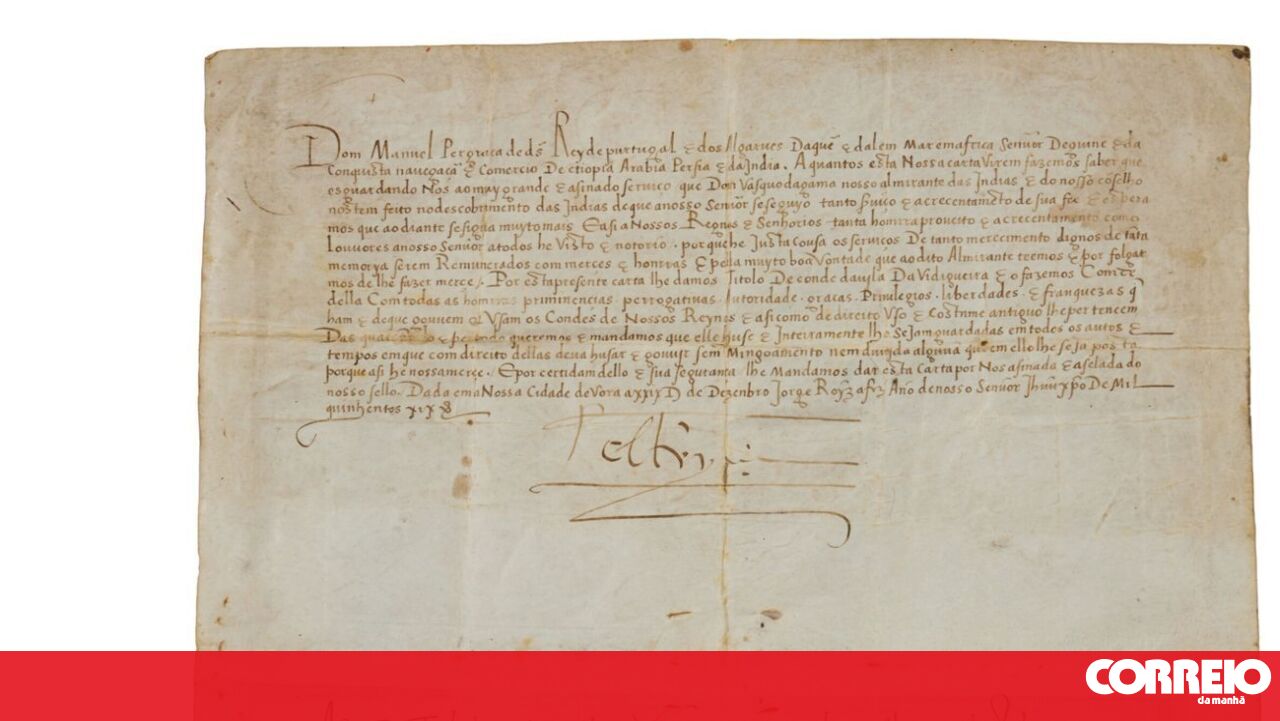 Dom Manuel Per graca de ds̃ Rey de purtugal ⁊ dos Algarves Daquẽ ⁊ dalem Mar em africa Senũor De guine ⁊ da
Conquista navegaçã ⁊ Comercio De etiopia Arabia Persia ⁊ da India . A quantos esta Nossa carta Virem fazemos saber que
esguardando Nos ao muy grande ⁊ asinado serviço que Dom Vasquo da gama nosso almirante das Indias ⁊ do nosso cõselho
nos tem feito no descobrimẽto das Indias de que a nosso Senũor se seguyo tanto ⁊ acrecentamẽto de sua fee ⁊ espera
mos que ao diante se sigua muyto mais ⁊ asi a Nossos Regnos ⁊ Senhorios tanta homrra proveito ⁊ acrecentamento como
Louvores a nosso Senũor a todos he Visto ⁊ notorio . porque he Justa cousa os serviços De tanto merecimento dignos de tãta
memorya serem Remunerados com merces ⁊ honrras ⁊ pella muyto boa Vontade que ao dito Almirante teemos ⁊ por folgar
mos de lhe fazer merce . Por esta presente carta lhe damos Titolo De conde da vila Da Vidigueira ⁊ o fazemos Comde
della Com todas as homrras priminencias . perrogativas . Autoridade . gracas . Privilegios . liberdades . ⁊ franquezas q̃
ham ⁊ de que gouvem ⁊ Usam os Condes de Nossos Reynos ⁊ asi como de direito Uso ⁊ Costume antiguo lhe pertencem
Das quaes ⁊ queremos ⁊ mandamos que elle huse ⁊ Inteiramente lhe sejam guardadas em todos os autos ⁊
tempos em que com direito dellas deva husar ⁊ gouvir sem Mingoamento nem duvida alguũa que em ello lhe seja posta
porque asi he nossa merce . E por certidam dello ⁊ sua seguranca lhe Mandamos dar esta Carta por Nos asinada ⁊ aselada do
nosso sello . Dada em a Nossa Cidade de Vora a xxix Ds̃ de Dezenbro Jorge Royz a fez Ano de nosso Senũor Jhuũ xp̃o De Mil
quinhentos xix
CORREIO
da manhã